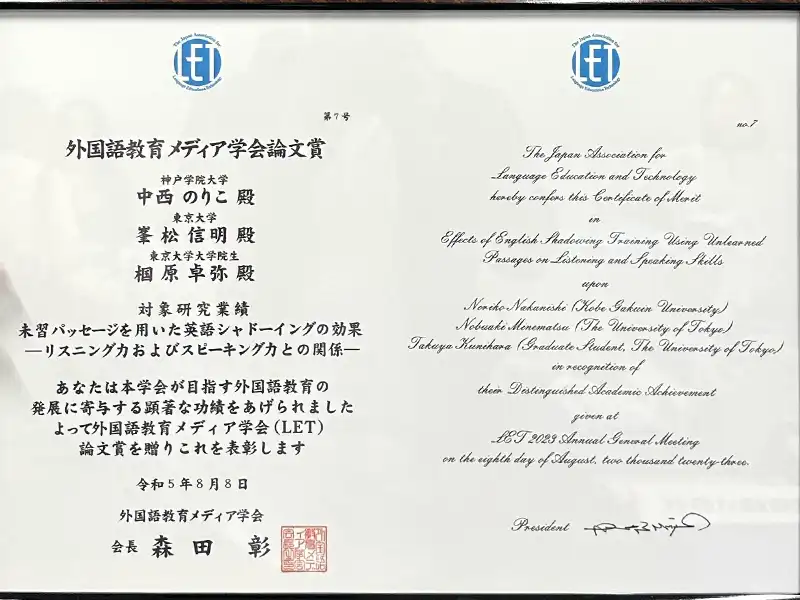 The Japan Association for
LET
Language Education Technology
第7号
外国語教育メディア学会論文賞
神戸学院大学
中西 のりこ 殿
東京大学
峯松 信明 殿
東京大学大学院生
椢原 卓弥 殿
対象研究業績
未習パッセージを用いた英語シャドーイングの効果
―リスニング力およびスピーキング力との関係―
あなたは本学会が目指す外国語教育の
発展に寄与する顕著な功績をあげられました
よって外国語教育メディア学会(LET)
論文賞を贈りこれを表彰します
令和5年8月8日
外国語教育メディア学会
会長 森田 彰
The Japan Association for
LET
Language Education Technology
no.7
The Japan Association for
Language Education and Technology
hereby confers this Certificate of Merit
on
Effects of English Shadowing Training Using Unlearned
Passages on Listening and Speaking Skills
upon
Noriko Nakanishi (Kobe Gakuin University)
Nobuaki Minematsu (The University of Tokyo)
Takuya Kunihara (Graduate Student, The University of Tokyo)
in recognition of
their Distinguished Academic Achievement
given at
LET 2023 Annual General Meeting
on the eighth day of August, two thousand twenty-three.
President